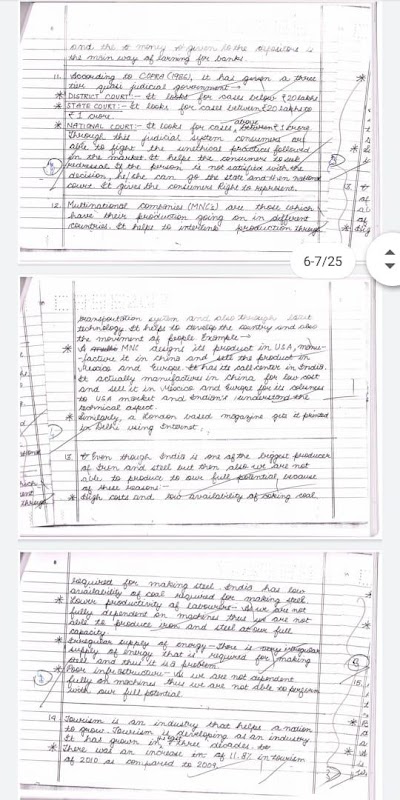 and the to money to given to the depositors is
the main way of earning for banks.
11. According to COPRA (1986), it has given a three
tier quasi judicial government →
* DISTRICT COURT:- It looks for cases below ₹20 lakhs
* STATE COURT:- It looks for cases between ₹20 lakhs to
₹ 1 crore.
* NATIONAL COURT:- It looks for cases, above ₹ 1 crore.
Through this judicial system consumers are
able to fight the unethical practices followed
in the market. It helps the consumers to seek
redressal. If the person is not satisfied with the
decision, he/she can go the state and then national
court. It gives the consumers Right to represent.
12. Multinational Companies (MNC's) are those which
have their production going on in different
countries. It helps to interlink production through
6-7/25
transportation system and also through latest
technology. It helps to develop the country and also
the movement of people. Example →
* A MNC designs its product in USA, manu-
facture it in China and sells the product in
Mexico and Europe. It has its call center in India.
It actually manufactures in China for low cost
and sell it in Mexico and Europe for its
to USA market and Indian's understand the
technical aspect.
* Similarly, a London based magazine gets it printed
in Delhi using Internet.
13. Even though India is one of the biggest producer
of Iron and steel but then also we are not
able to produce to our full potential because
of these reasons:-
* High costs and low availability of coking coal
required for making steel. India has low
availability of coal required for making steel.
* Lower productivity of labourers- As we are not
fully dependent on machines thus we are not
able to produce iron and steel at our full
capacity.
* Irregular supply of energy- There is irregular
supply of energy that is required for making
steel and thus it is a problem.
* Poor infrastructure- As we are not dependent
fully on machines thus we are not able to perform
with our full potential
14. Tourism is an industry that helps a nation
to grow. Tourism is developing as an industry.
It has grown in three decades.
* There was an increase in of 11.8% in tourism
of 2010 as compared to 2009.